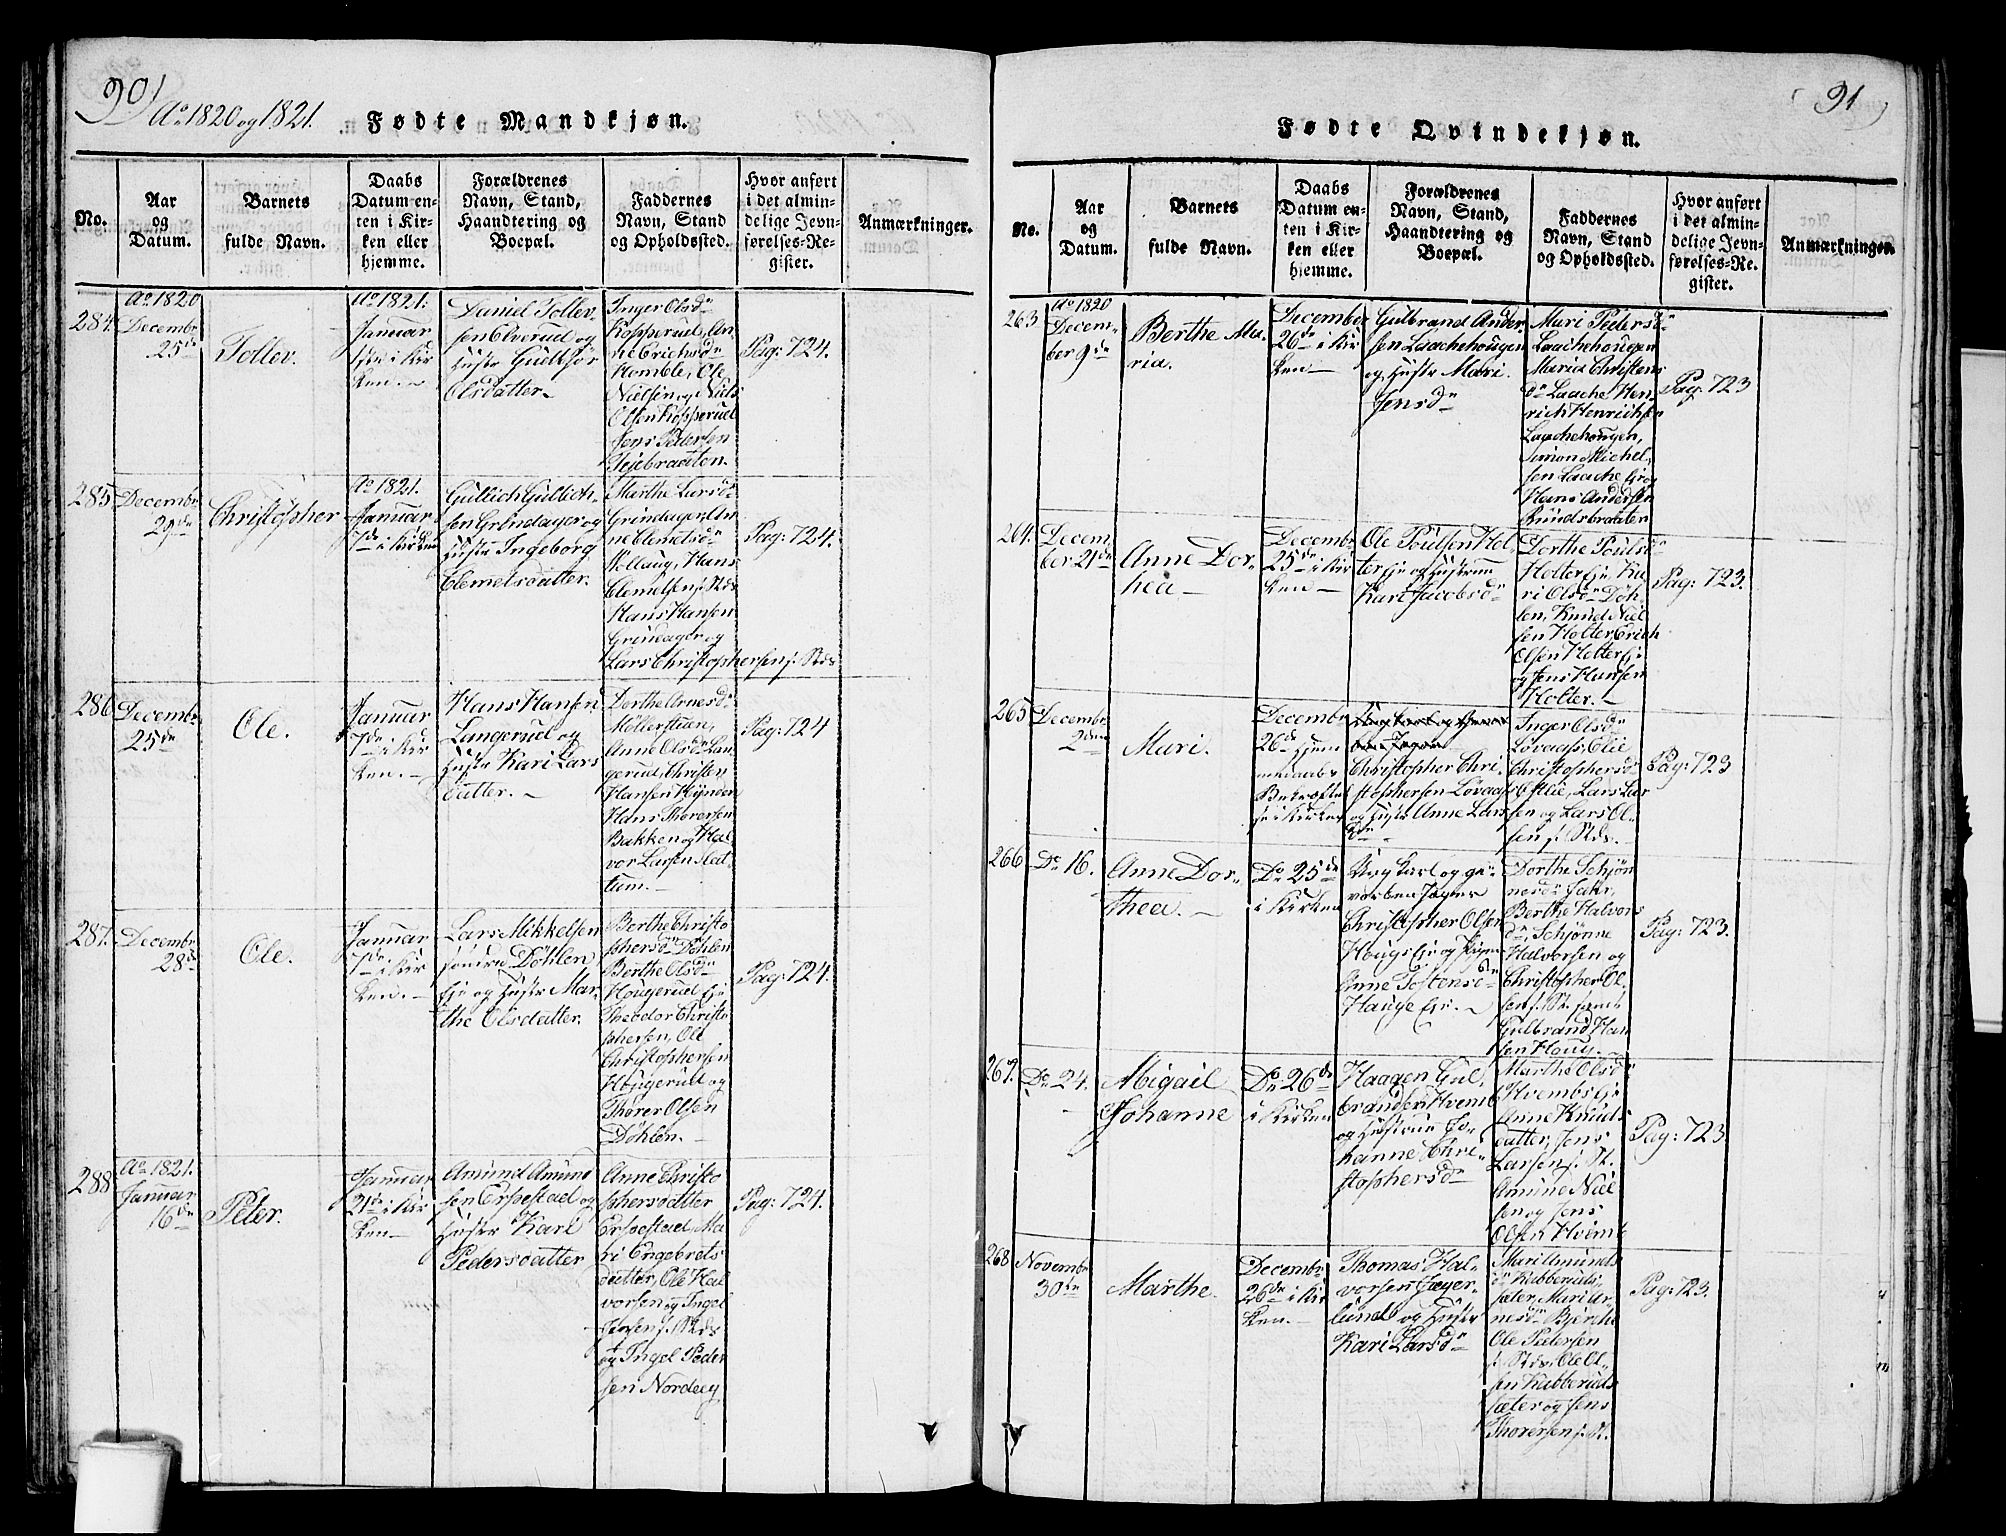 90
Ao 1820 og 1821.
Fødte Mandkjøn.
No.
Aar
og
Datum.
Barnets
fulde Navn.
Daabs
Datum en-
ten i Kir-
ken eller
hjemme.
Forældrenes
Navn, Stand,
Haandtering og
Boepæl.
Faddernes
Navn, Stand
og Opholdssted.
Hvor anført
i det almin-
delige Jevn-
førelses-Re-
gister.
Anmærkninger.
284.
Ao 1820
Decembr
25de
Tollev.
Ao 1821.
Januar
i Kir
ken.
Daniel Tollev-
sen Elverud og
Hustr Gudlhør
Olsdatter
Inger Olsdr
Kopperud, An-
ne Erichsdr
Homble, Ole
Nielsen og Niels
Olsen Kopperud
Jens Pedersen
Tejebraaten.
Pag: 724.
285.
Decembr
29de
Christopher
Ao 1821.
Januar
7de i Kirken
Gullich Gullich-
sen Grindager og
Hustr Ingeborg
Clemetsdatter.
Marthe Larsdr
Grindager, An
ne Clemetsdr
Hollaug, Hans
Clemetsen s. Stds
Hans Hansen
Grindager og
Lars Christophersen s. Stds
Pag: 724.
286
Decembr
25de
Ole.
Januar
7de i Kir
ken.
Hans Hansen
Langerud og
Hustr Kari Lars
datter.
Dorthe Arnesdr
Möllerstuen,
Anne Olsdr Lan
gerud, Christen
Hansen Kynden
Hans Thorersen
Bakken og Hal
vor Larsen Hat-
tum.
Pag: 724
287.
Decembr
28de
Ole.
Januar
7de i Kir
ken.
Lars Mikkelsen
söndre Döhlen
Eje og Hustr Mar-
the Olsdatter.
Berthe Christo
phersdr Döhlen
Berthe Olsdr
Hougerud Eje
Theodor Christo
phersen, Ole
Christophersen
Hougerud og
Thorer Olsen
Döhlen.
Pag: 724.
288
Ao 1821.
Januar
16de
Peter.
Januar
21de i Kir
ken
Amund Amund
sen Erpestad og
Hustr Kari
Pedersdatter
Anne Christo
phersdatter
Erpestad, Ma
ri Engebrets
datter, Ole Hal
vorsen og Ingel
s. Stds
og Ingel Peder
sen Nordbey
Pag: 724.
91
Fødte Qvindekjøn.
No.
Aar
og
Datum.
Barnets
fulde Navn.
Daabs
Datum en-
ten i Kir-
ken eller
hjemme.
Forældrenes
Navn, Stand,
Haandtering og
Boepæl.
Faddernes
Navn, Stand
og Opholdssted.
Hvor anført
i det almin-
delige Jevn-
førelses-Re-
gister.
Anmærkninger.
263
Ao 1820
Decem-
ber 9de
Berthe Ma-
ria.
December
26de i Kir
ken
Gulbrand Ander-
sen Laachehougen
og Hustr Mari
Jensdr
Mari Pedersdr
Laachehougen
Maria Christens
dr Laache, Hen
rich Henrichsen
Laachehougen,
Simon Michel-
sen Laache Eje og
Hans Andersen
Rundsbraaten
Pag: 723
264.
Decem
ber 21de
Anne Dor-
thea
Decembr
25de i Kir
ken
Ole Poulsen Hol,
ter Eje og Hustrue
Kari Jacobsdr
Dorthe Poulsdr
Holter Eje, Ka
ri Olsdr Döh-
len, Knud Niel
sen Holter, Erich
Olsen Holter Eje
og Jens Hansen
Holter.
Pag: 723.
265
Decembr
2den
Mari.
Decembr
26de Hjem
medaabs
Bekræftel
se i Kirken
Christopher Chri-
stophersen Lövaas
og Hustr Anne Lars
dr
Inger Olsdr
Lövaas, Olie
Christophersdr
Ostlie, Lars Lar
sen og Lars Ol-
sen s. Stds.
Pag: 723
266
Do 16.
Anne Dor-
thea.
Do 25de
i Kirken
Ung Karl og ge-
vorben Jæger
Christopher Olsen
Hougs Eje og Pige
Anne Tostensdr
Hauge Eje.
Dorthe Schjön
nesdr
Berthe Halvors
dr, Schjönne
Halvorsen og
Christopher Ol-
sen s. St samt
Gulbrand Han
sen Houg.
Pag: 723.
267.
Do 24.
Abigail
Johanne
Do 26de
i Kirken
Haagen Gul,
brandsen Hvemb
og Hustrue Jo-
hanne Chri-
stophersdr
Marthe Olsdr
Hvembs Eje
Anne Knuds
datter, Jens
Larsen s. St.
Amund Niel
sen og Jens
Olsen Hvemb
Pag: 723.
268
Novembr
30te
Marthe.
Decembr
26de i Kir
ken.
Thomas Hal-
vorsen Jæger-
lund og Hustr
Kari Larsdr
Mari Amunds
dr Kabberuds-
sæter, Mari Ar-
nesdr Bjerche
Ole Pedersen
s. Stds, Ole Ol-
sen Kabberuds
sæter og Jens
Thorersen s. St.
Pag: 723.